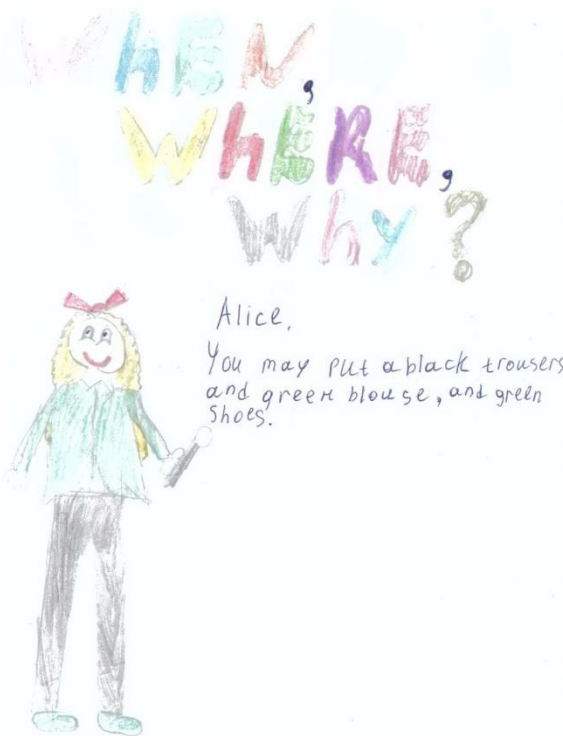 WhEN,
WhERE,
Why?
Alice,
You may put a black trousers
and green blouse, and green
shoes.